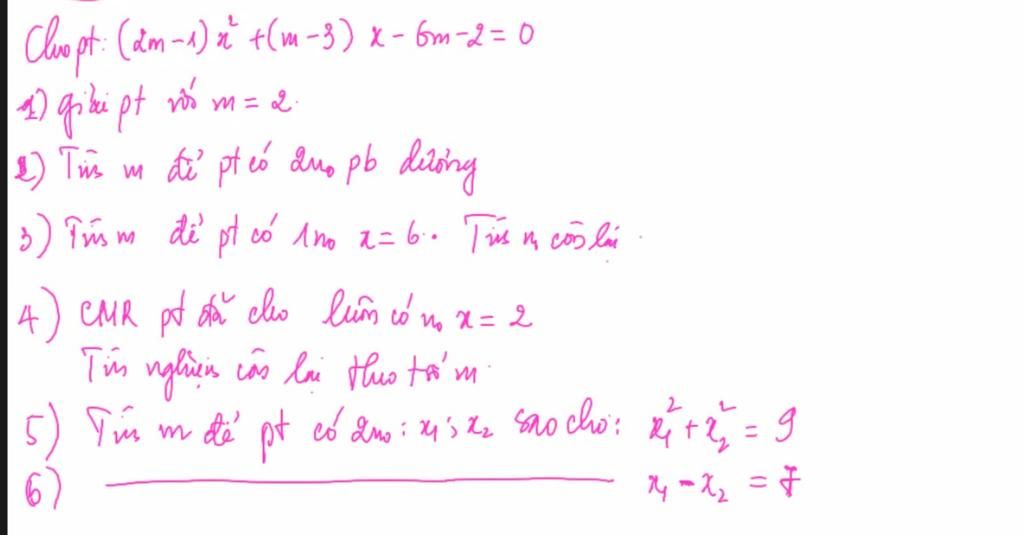 Cho pt: (2m-1)x² + (m-3)x - 6m - 2 = 0
1) giải pt với m = 2.
2) Tìm m để pt có 2no pb dương
3) Tìm m để pt có 1no x = 6. Tìm no còn lại.
4) CMR pt đã cho luôn có no x = 2
Tìm nghiệm còn lại theo t/số m.
5) Tìm m để pt có 2no: x₁; x₂ sao cho: x₁² + x₂² = 9
6) ________ x₁ - x₂ = 7